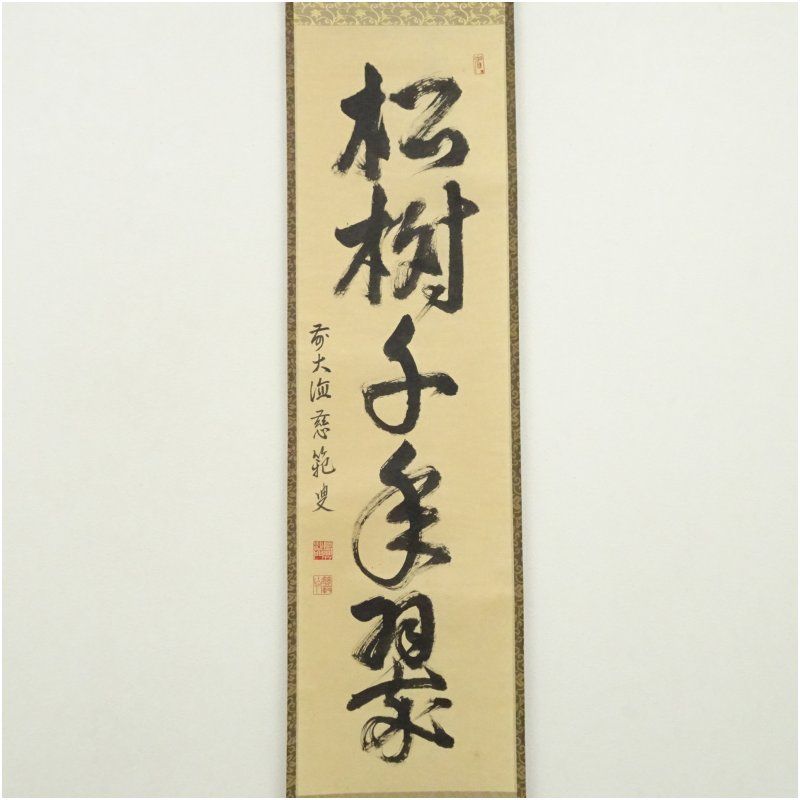 松樹千年翠
前大徳慈範叟